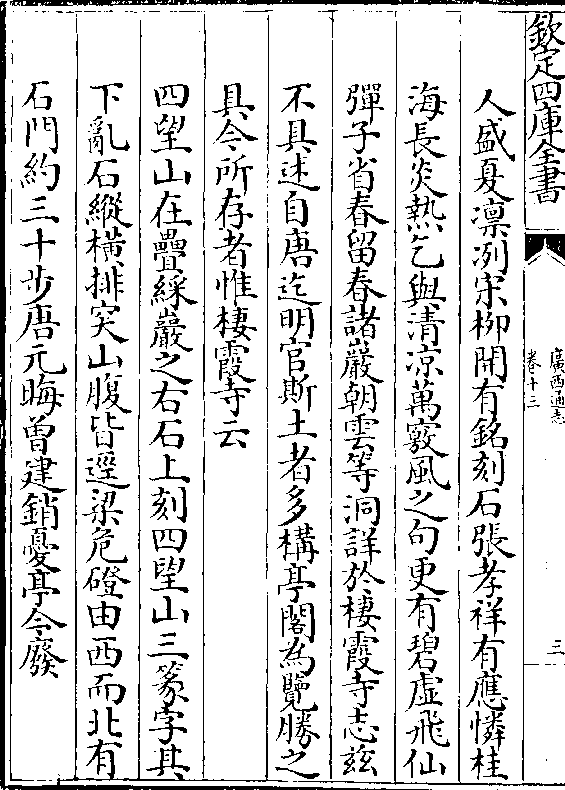 欽定四庫全書
廣西通志
卷十三
三
人盛夏凛冽宋栁開有銘刻石張孝祥有應憐桂
海長炎熱乞與清凉萬竅風之句更有碧虚飛仙
彈子省春留春諸巖朝雲等洞詳於棲霞寺志兹
不具述自唐迄明官斯土者多構亭閣為覽勝之
具今所存者惟棲霞寺云
四望山在疊綵巖之右石上刻四望山三篆字其
下亂石縱横排突山腹皆逕梁危磴由西而北有
石門約三十步唐元晦曽建銷憂亭今廢